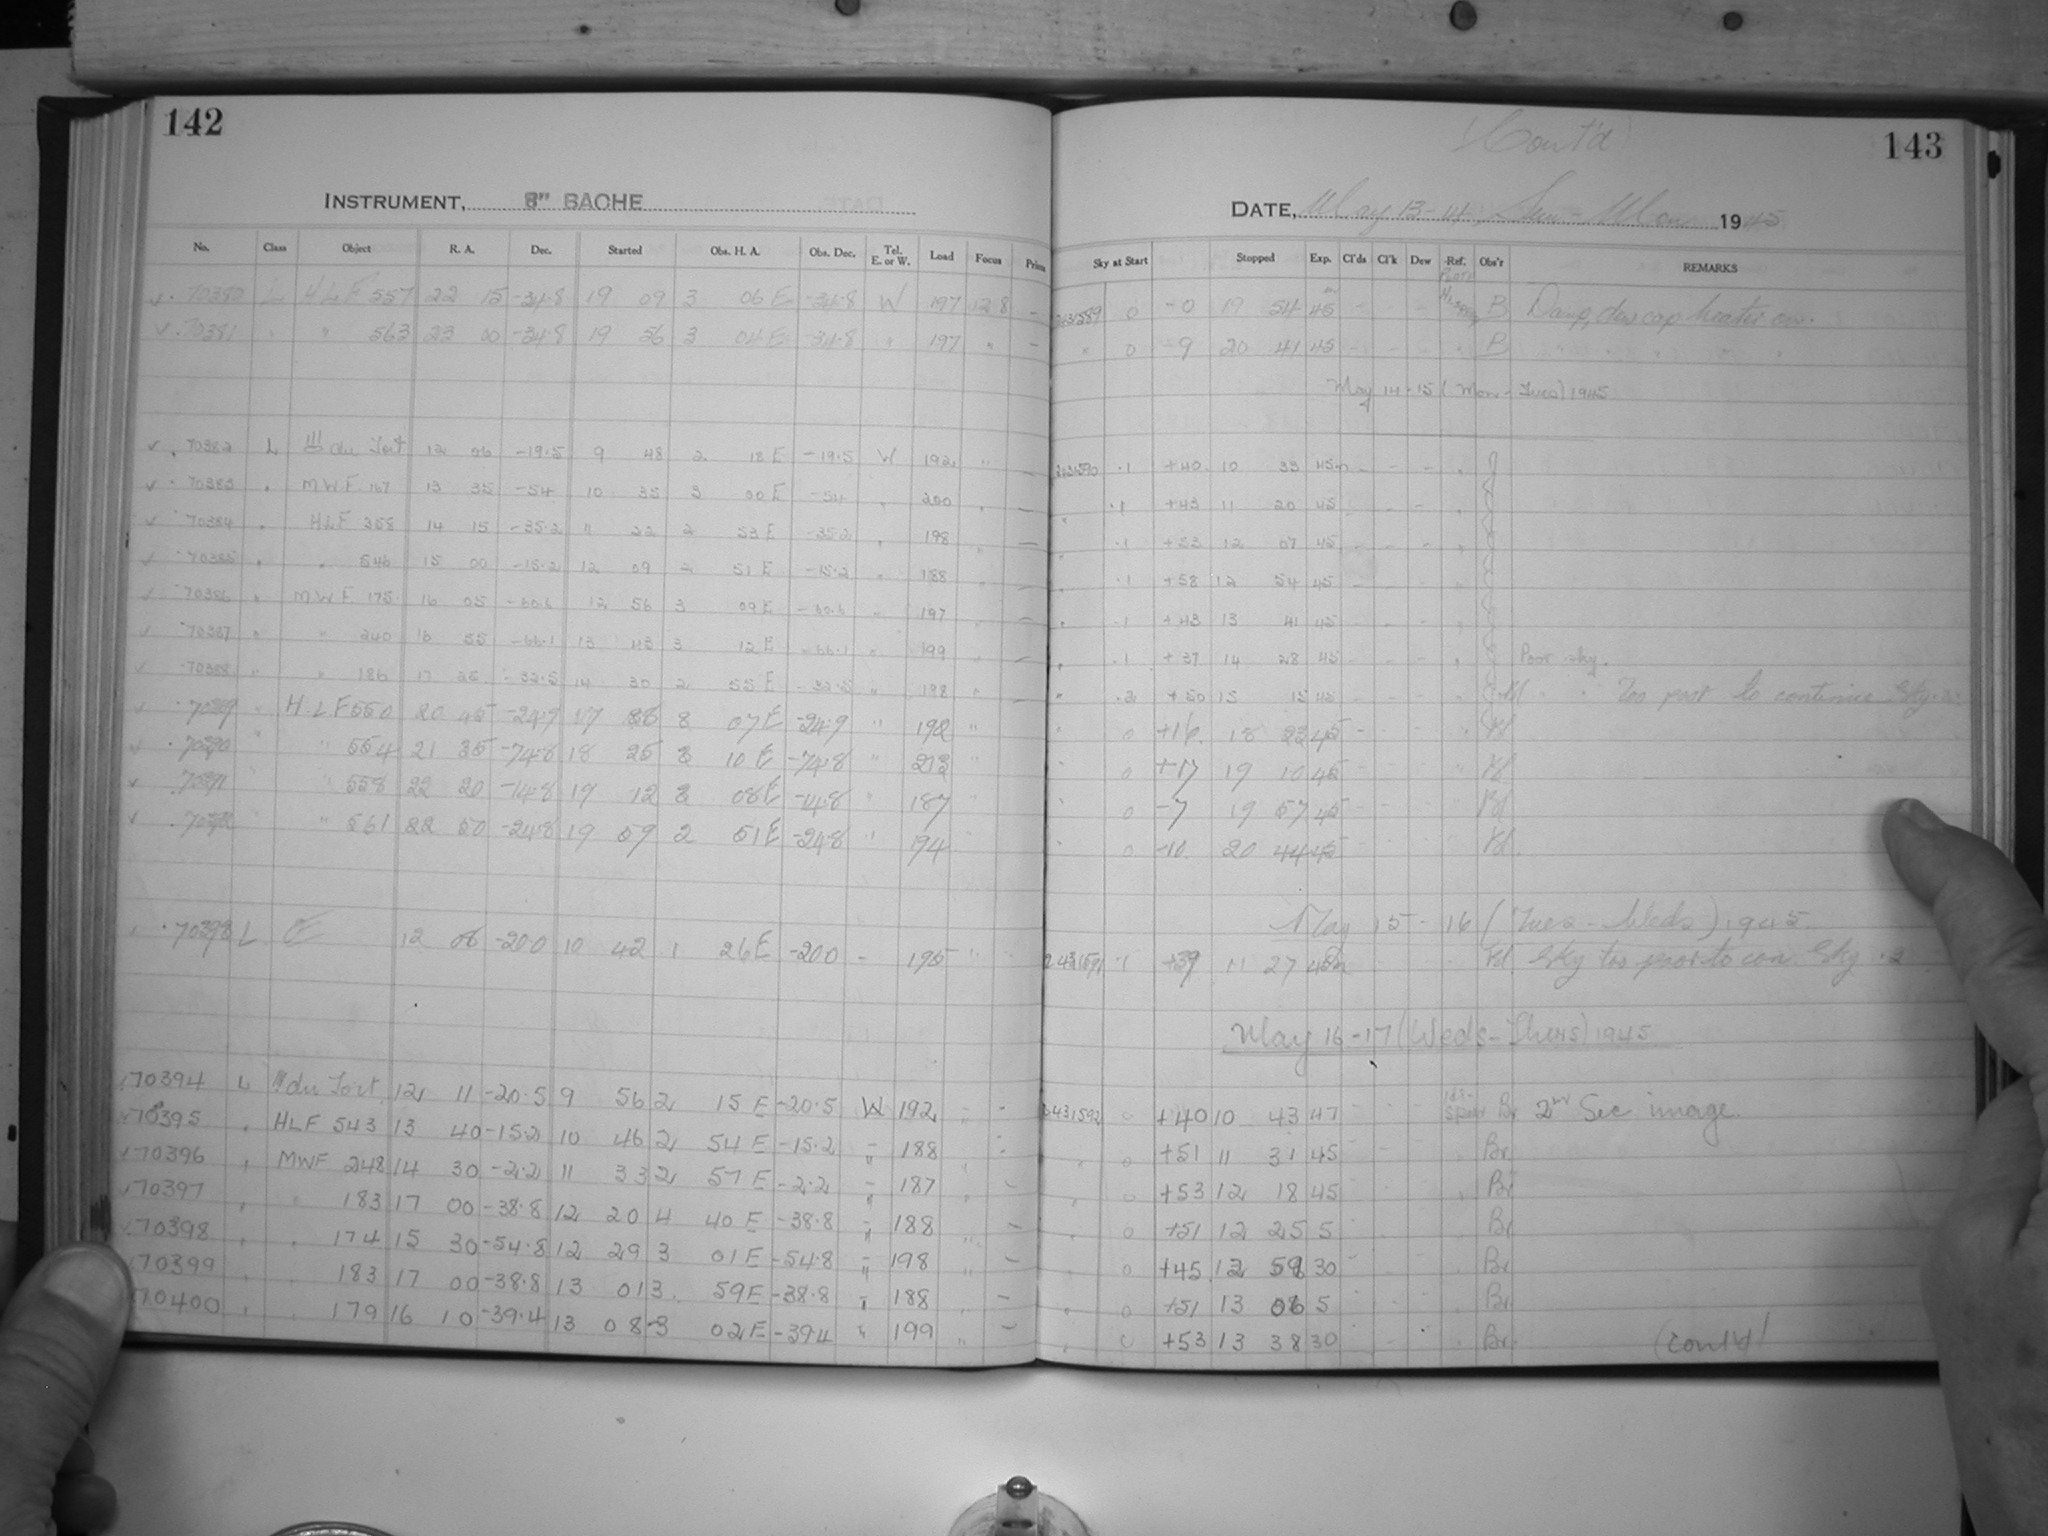 142
INSTRUMENT, 8" BACHE
No. Class Object R. A. Dec. Started Obs. H. A. Obs. Dec. Tel. E. or W. Load Focus Prism
70380 L HLF 557 22 15 -34.8 19 09 3 06 E -34.8 W 197 12.8 -
70381 " " 563 23 00 -34.8 19 56 3 04 E -34.8 " 197 " -
70382 L du Toit 12 06 -19.5 9 48 2 18 E -19.5 W 192 " -
70383 MWF 167 13 35 -54 10 35 3 00 E -54 200
70384 HLF 358 14 15 -35.2 11 22 2 53 E -35.2 198
70385 " 546 15 00 -15.2 12 09 2 51 E -15.2 188
70386 " MWF 175 16 05 -60.6 12 56 3 09 E -60.6 197
70387 " 240 16 55 -66.1 13 43 3 12 E -66.1 " 199
70388 " " 186 17 25 -32.5 14 30 2 55 E -32.5 " 198
70389 " HLF 550 20 45 -24.9 17 3 07 E -24.9 " 192 "
70390 " " 554 21 35 -74.8 18 25 3 10 E -74.8 " 213 "
70391 " " 558 22 20 -14.8 19 12 3 08 E -14.8 " 187 "
70392 " " 561 22 50 -24.8 19 59 2 51 E -24.8 " 194
70393 L 12 08 -20.0 10 42 1 26 E -20.0 - 195 "
70394 L du Toit 12 11 -20.5 9 56 2 15 E -20.5 W 192 - -
70395 HLF 543 13 40 -15.2 10 46 2 54 E -15.2 " 188
70396 MWF 248 14 30 -2.2 11 33 2 57 E -2.2 " 187
70397 " 183 17 00 -38.8 12 20 4 40 E -38.8 " 188
70398 " 174 15 30 -54.8 12 29 3 01 E -54.8 " 198
70399 183 17 00 -38.8 13 01 3 59 E -38.8 " 188
70400 179 16 10 -39.4 13 08 3 02 E -39.4 " 199
(Cont'd)
143
DATE, May 13-14, Sun - Mon 1945
Sky at Start Stopped Exp. Cl'ds Cl'k Dew Ref. Obs'r REMARKS
2431589 0 -0 19 54 45 - - - B Damp, dew cap heater on.
" 0 -9 20 41 45 - - - " B " " " " "
May 14-15 (Mon - Tues) 1945
2431590 .1 +40 10 33 45m - - - J
.1 +43 11 20 45 - - -
.1 +53 12 07 45 - - -
.1 +58 12 54 45 - - -
.1 +43 13 41 45 - - -
.1 +37 14 28 45 - - - Poor sky.
" .2 +50 15 15 45 - - - " " Too poor to continue Sky
" 0 +16 18 23 45 - - -
0 +17 19 10 45 - - -
0 -7 19 57 45 - - -
0 -10 20 44 45 - - -
May 15-16 (Tues - Weds) 1945.
2431591 .1 +39 11 27 45m - - - Sky too poor to con. Sky .2
May 16-17 (Weds - Thurs) 1945
2431592 0 +40 10 43 47 - - Br 2nd Sec image.
0 +51 11 31 45 Br
0 +53 12 18 45 Br
0 +51 12 25 5 Br
0 +45 12 59 30 Br
0 +51 13 06 5 Br
0 +53 13 38 30 Br
(cont'd)